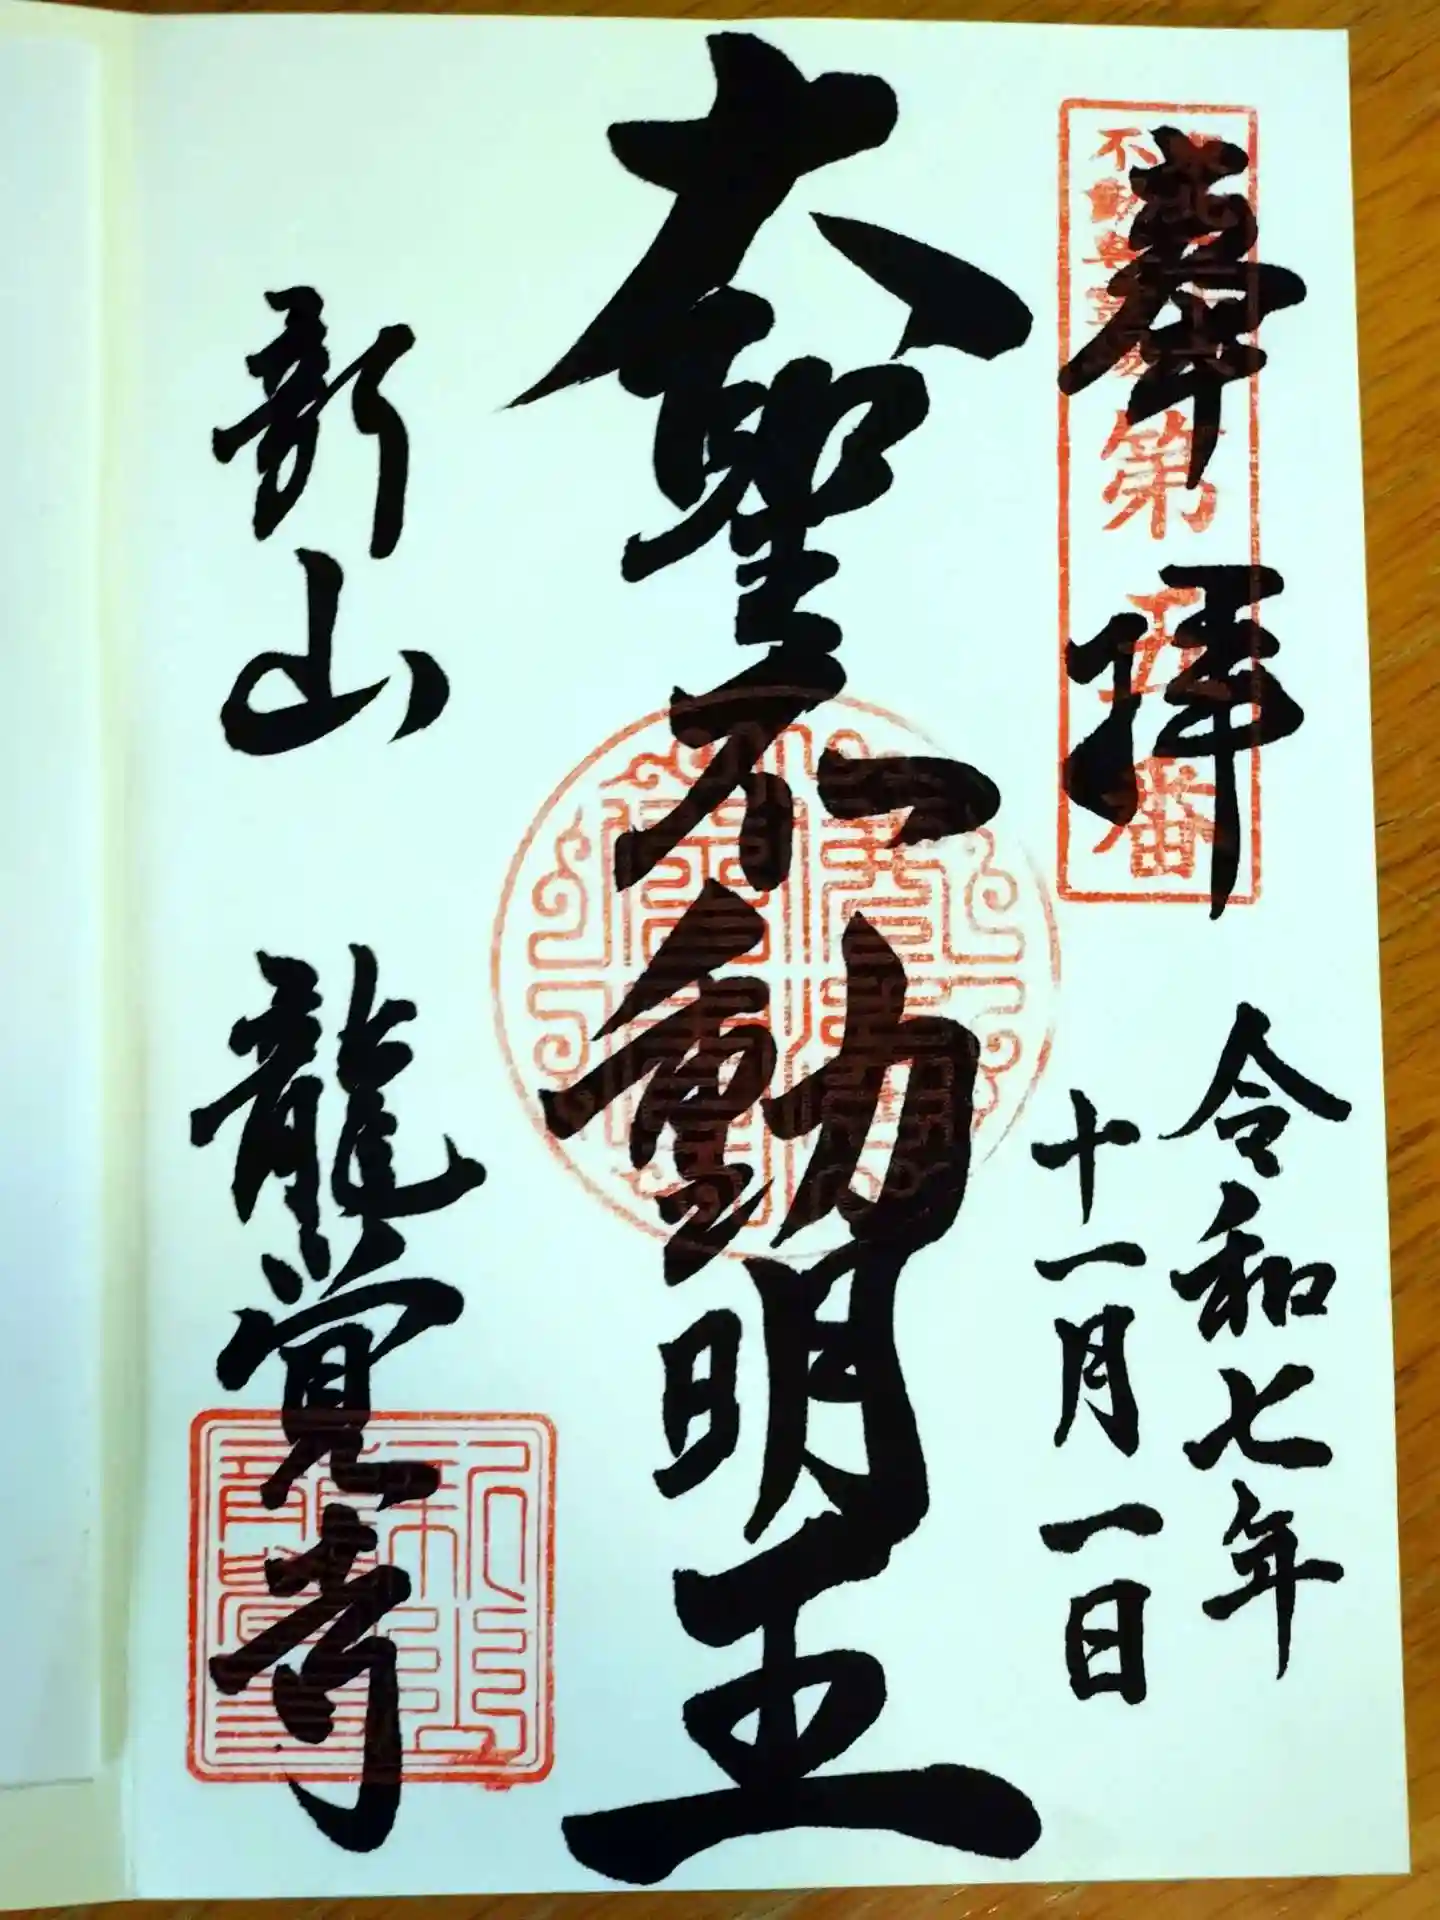 奉拝
第五番
令和七年
十一月一日
大聖不動明王
新山
龍覚寺